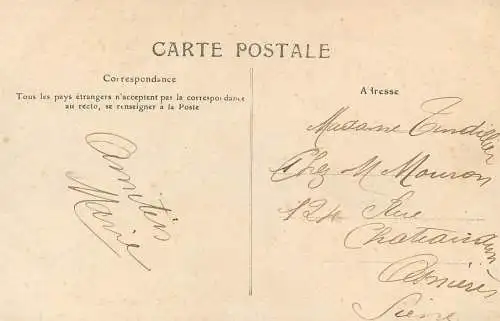 CARTE POSTALE
Correspondance
Tous les pays étrangers n'acceptent pas la correspondance
au recto, se renseigner à la Poste
Amitiés
Marie
Adresse
Madame
Chez M Mouron
124 Rue
Chateaudun
Asnières
Seine